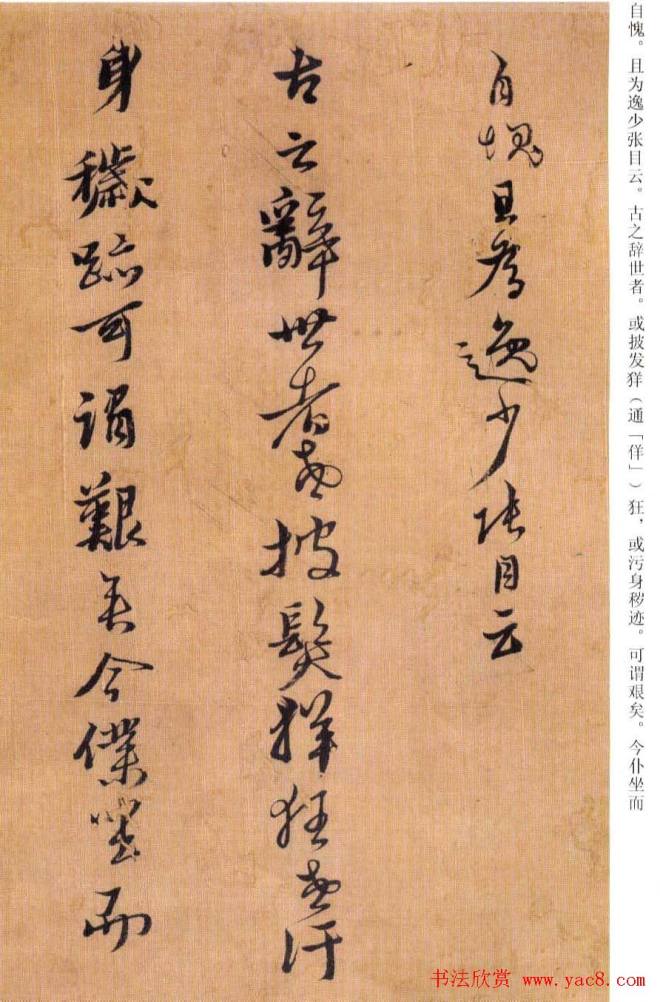 自愧且為逸少張目云
古之辭世者或披髮佯狂或污
身穢跡可謂艱矣今僕坐而
自愧。且为逸少张目云。古之辞世者。或披发佯（通「佯」）狂，或污身秽迹。可谓艰矣。今仆坐而
书法欣赏 www.yac8.com